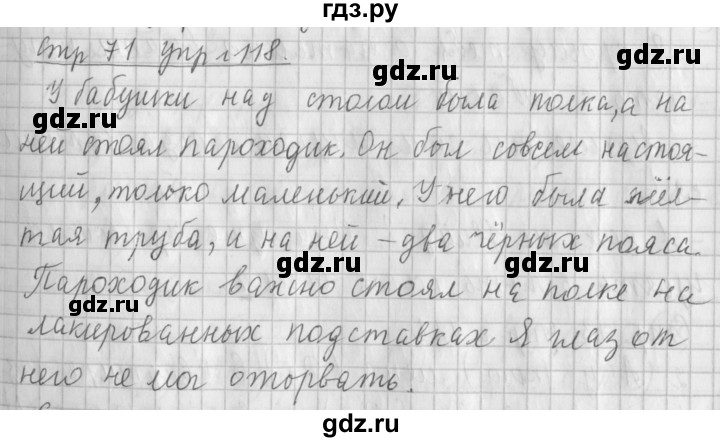 гдз.ру
стр 71 упр 118.
gdz.ru
gdz.ru
У бабушки над столом была полка, а на
gdz.ru
gdz.ru
ней стоял пароходик. Он был совсем настоя-
gdz.ru
щий, только маленький. У него была жёл-
тая труба, и на ней – два чёрных пояса.
gdz.ru
gdz.ru
Пароходик важно стоял на полке на
gdz.ru
gdz.ru
лакированных подставках Я глаз от
него не мог оторвать.
gdz.ru
gdz.ru